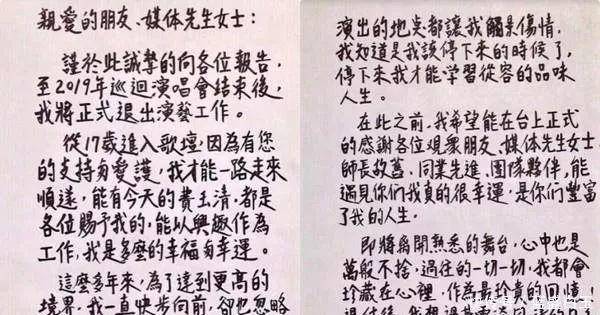 親愛的朋友、媒体先生女士：
謹於此誠摯的向各位報告，
至2019年巡迴演唱會結束後，
我將正式退出演藝工作。
從17歲進入歌壇，因為有您
的支持與愛護，我才能一路走來
順遂，能有今天的費玉清，都是
各位賜予我的，能以興趣作為
工作，我是多麼的幸福與幸運。
這麼多年來，為了達到更高的
境界，我一直快步向前，卻也忽略
演出的地点都讓我觸景傷情，
我知道是我該停下來的時候了，
停下來我才能學習從容的品味
人生。
在此之前，我希望能在台上正式
的感謝各位觀衆朋友、媒体先生女士、
師長故舊、同業先進、團隊夥伴，能
遇見你們我真的很幸運，是你們豐富
了我的人生。
即將離開熟悉的舞台，心中也是
萬般不捨，過往的一切一切，我都會
珍藏在心裡，作為最珍貴的回憶！